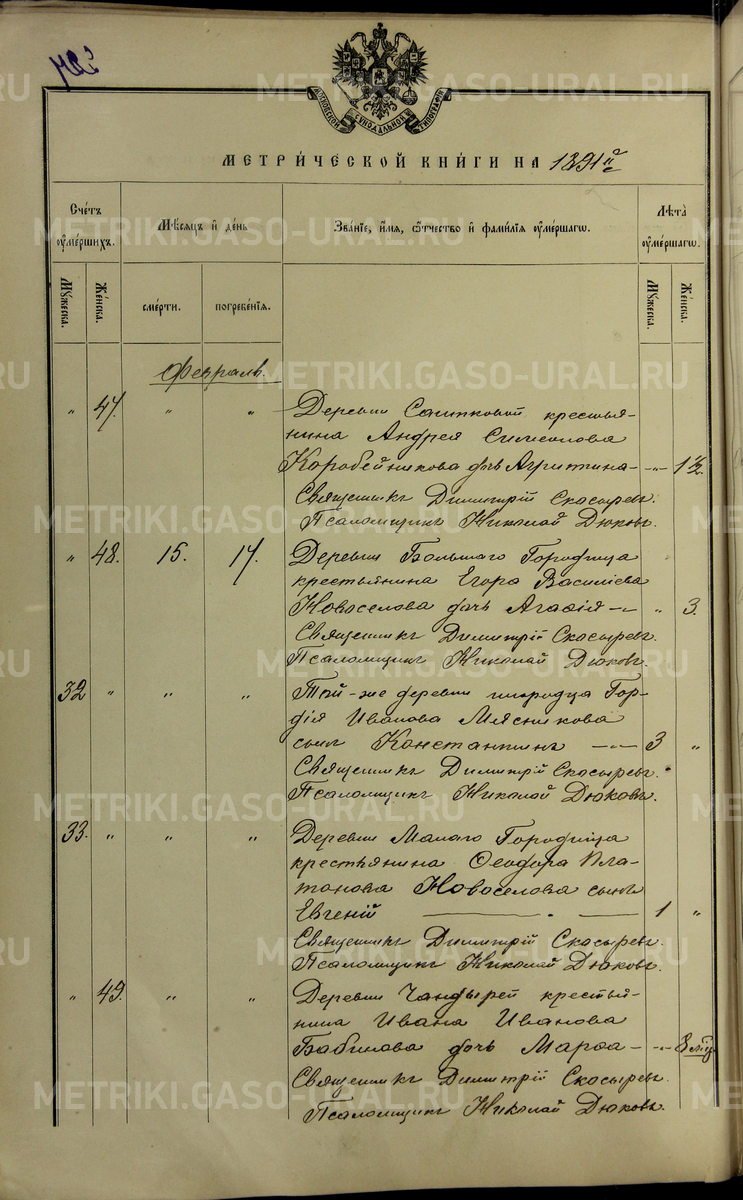 МОСКОВСКОЙ СѴНОДАЛЬНОЙ ТИПОГРАФІИ
МЕТРИ́ЧЕСКОЙ КНИ́ГИ НА 1891й
Сче́тъ ᲂу҆ме́ршихъ.
Мѣ́сяцъ и҆ де́нь
Зва́нїе, и҆́мя, ѻ҆́тчество и҆ фами́лїя ᲂу҆ме́ршагѡ.
Лѣ́та ᲂу҆ме́ршагѡ.
Мꙋ́жеска.
Же́нска.
сме́рти.
погребе́нїя.
Мꙋ́жеска.
Же́нска.
Февраль.
" 47. " " Деревни крестья-
нина Андрея Симеонова
Коробейникова дочь Агрипина - " - 1½.
Священникъ Димитрій Скосыревъ.
Псаломщикъ Николай Дюковъ.
" 48. 15. 17. Деревни Большаго Городища
крестьянина Егора Василіева
Новоселова дочь Агафія - " 3.
Священникъ Димитрій Скосыревъ.
Псаломщикъ Николай Дюковъ.
32 " " " Той-же деревни инородца Гор-
дія Иванова Мясникова
сынъ Константинъ - 3 "
Священникъ Димитрій Скосыревъ.
Псаломщикъ Николай Дюковъ.
33. " " " Деревни Малаго Городища
крестьянина Ѳеодора Пла-
тонова Новоселова сынъ
Евгеній - 1 "
Священникъ Димитрій Скосыревъ.
Псаломщикъ Николай Дюковъ.
" 49. " " Деревни Чандырей крестья-
нина Ивана Иванова
Бабинова дочь Марѳа - " - 8 мѣц.
Священникъ Димитрій Скосыревъ.
Псаломщикъ Николай Дюковъ.
METRIKI.GASO-URAL.RU